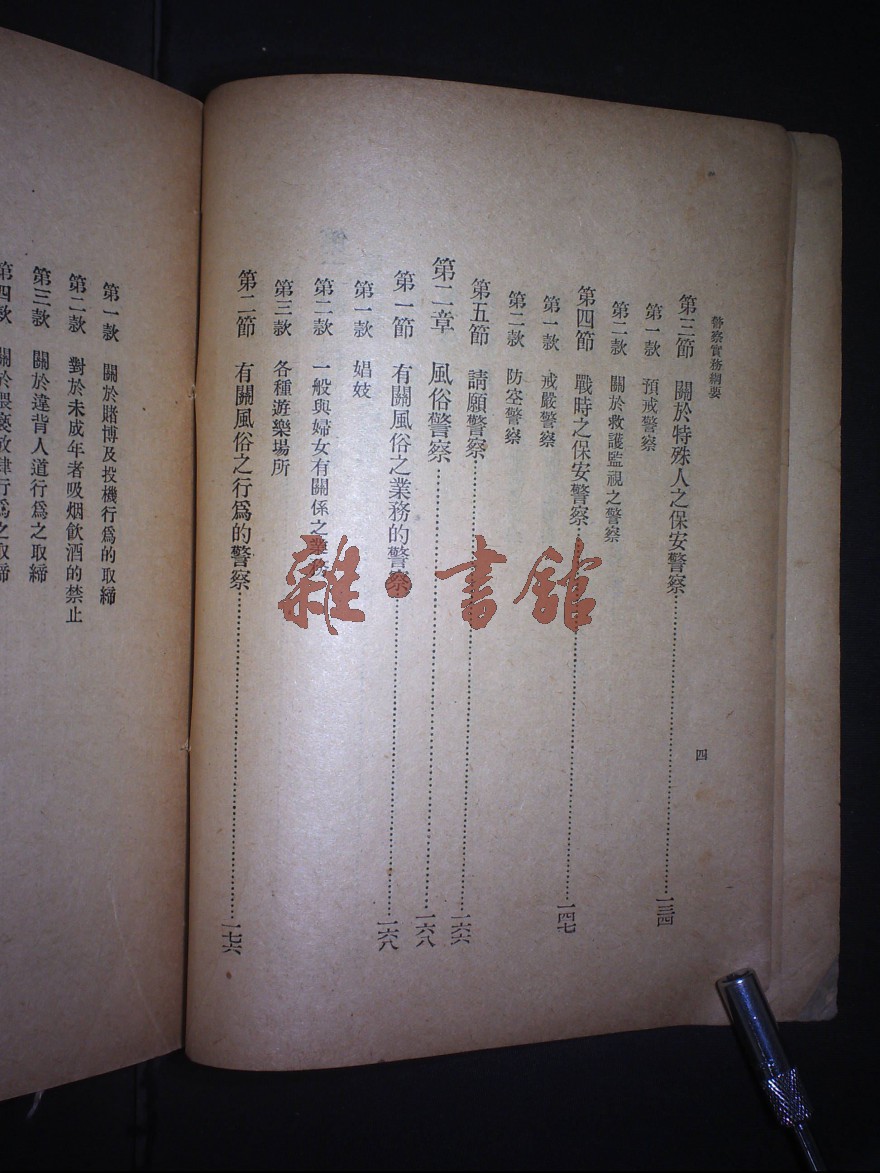 警察實務綱要
四
第三節　關於特殊人之保安警察……一三四
第一款　預戒警察
第二款　關於救護監視之警察
第四節　戰時之保安警察……一四七
第一款　戒嚴警察
第二款　防空警察
第五節　請願警察……一六六
第二章　風俗警察……一六八
第一節　有關風俗之業務的警察……一六八
第一款　娼妓
第二款　一般與婦女有關係之業務
第三款　各種遊樂場所
第二節　有關風俗之行爲的警察……一七六
第一款　關於賭博及投機行爲的取締
第二款　對於未成年者吸烟飲酒的禁止
第三款　關於違背人道行爲之取締
第四款　關於猥褻放肆行爲之取締
雜·書館